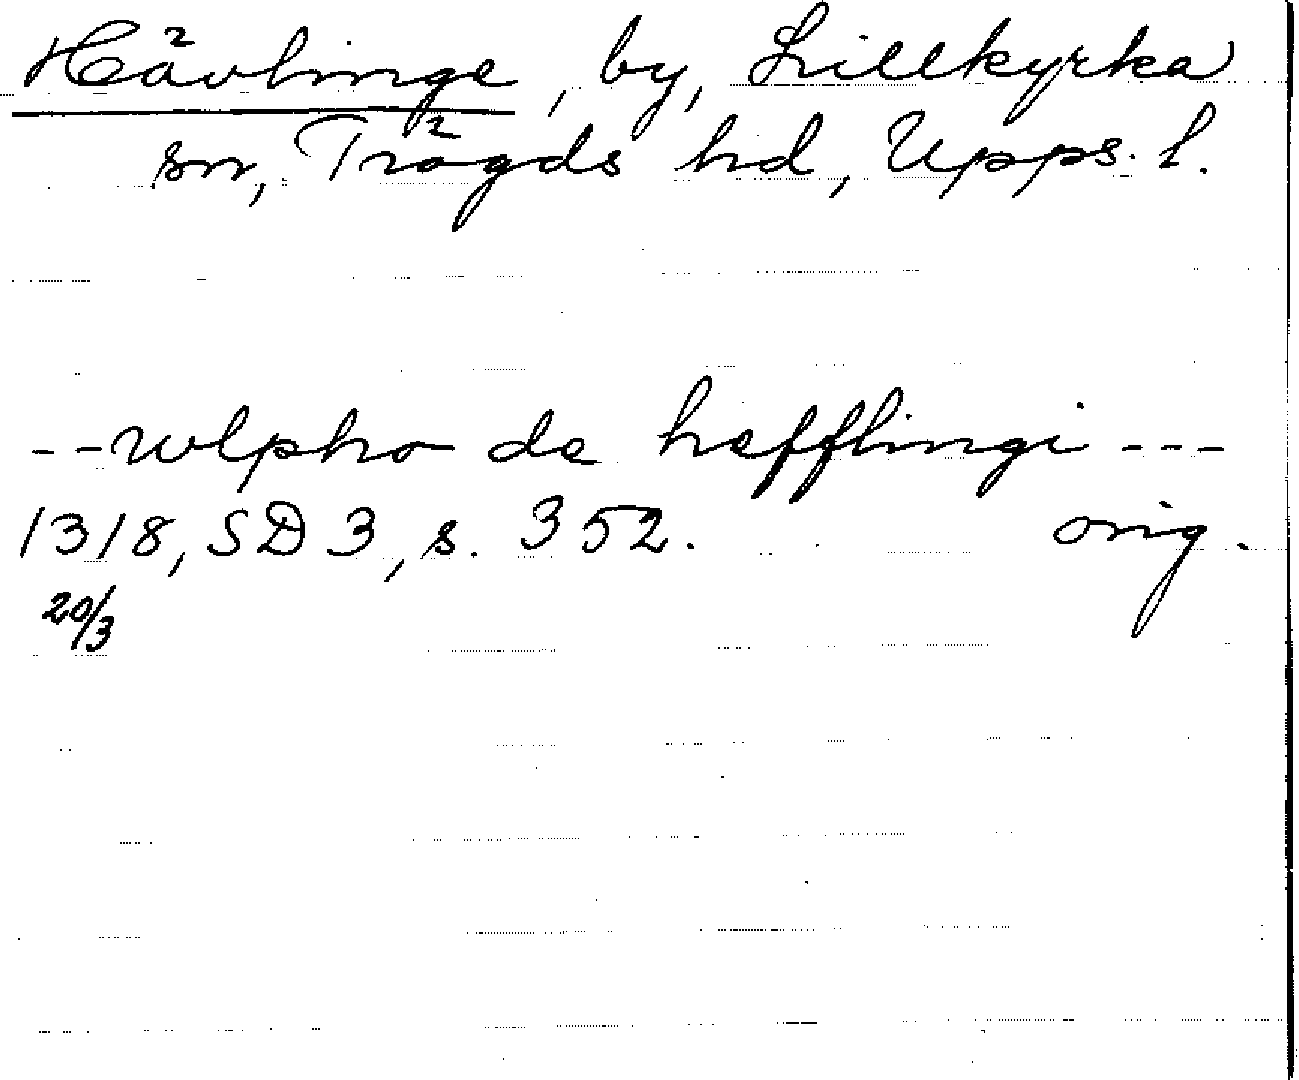 Hävlinge, by, Lillkyrka
sn, Trögds hd, Upps. l.
--wlpho de hefflingi ---
1318, SD 3, s. 352. orig.
20/3